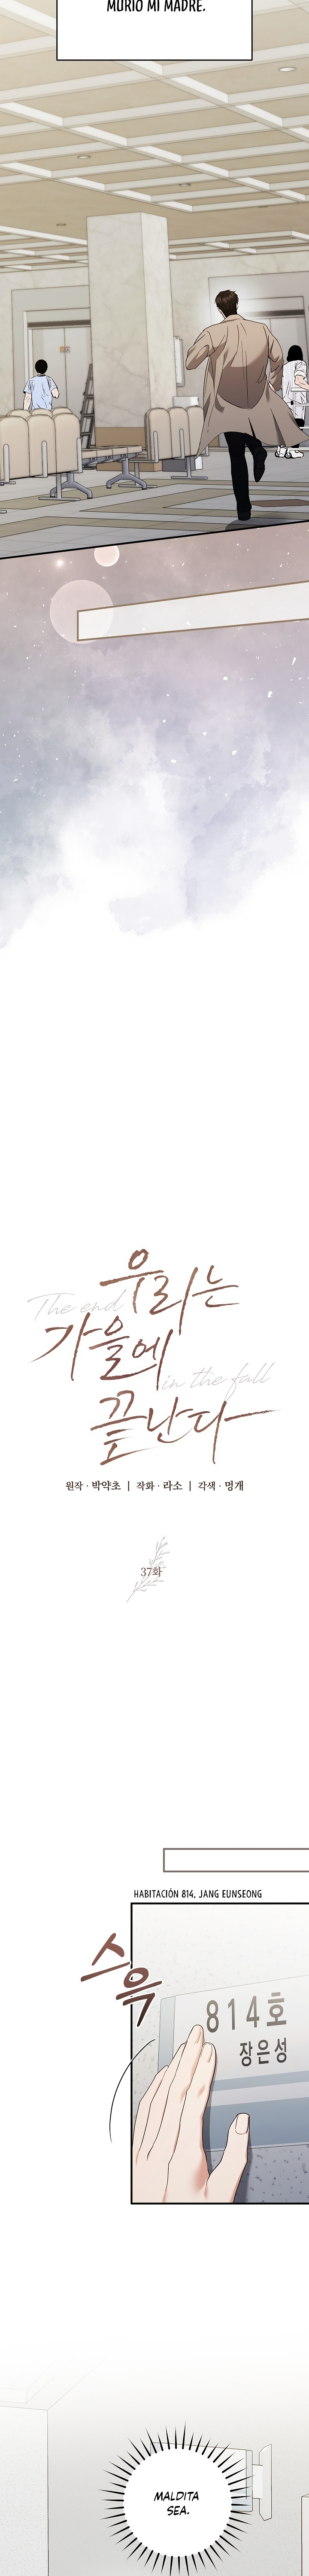 MURIÓ MI MADRE.
우리는
The end
가을에
in the fall
끝난다
원작 · 박약초 | 작화 · 라소 | 각색 · 멍개
37화
HABITACIÓN 814, JANG EUNSEONG
스윽
814호
장은성
MALDITA
SEA.